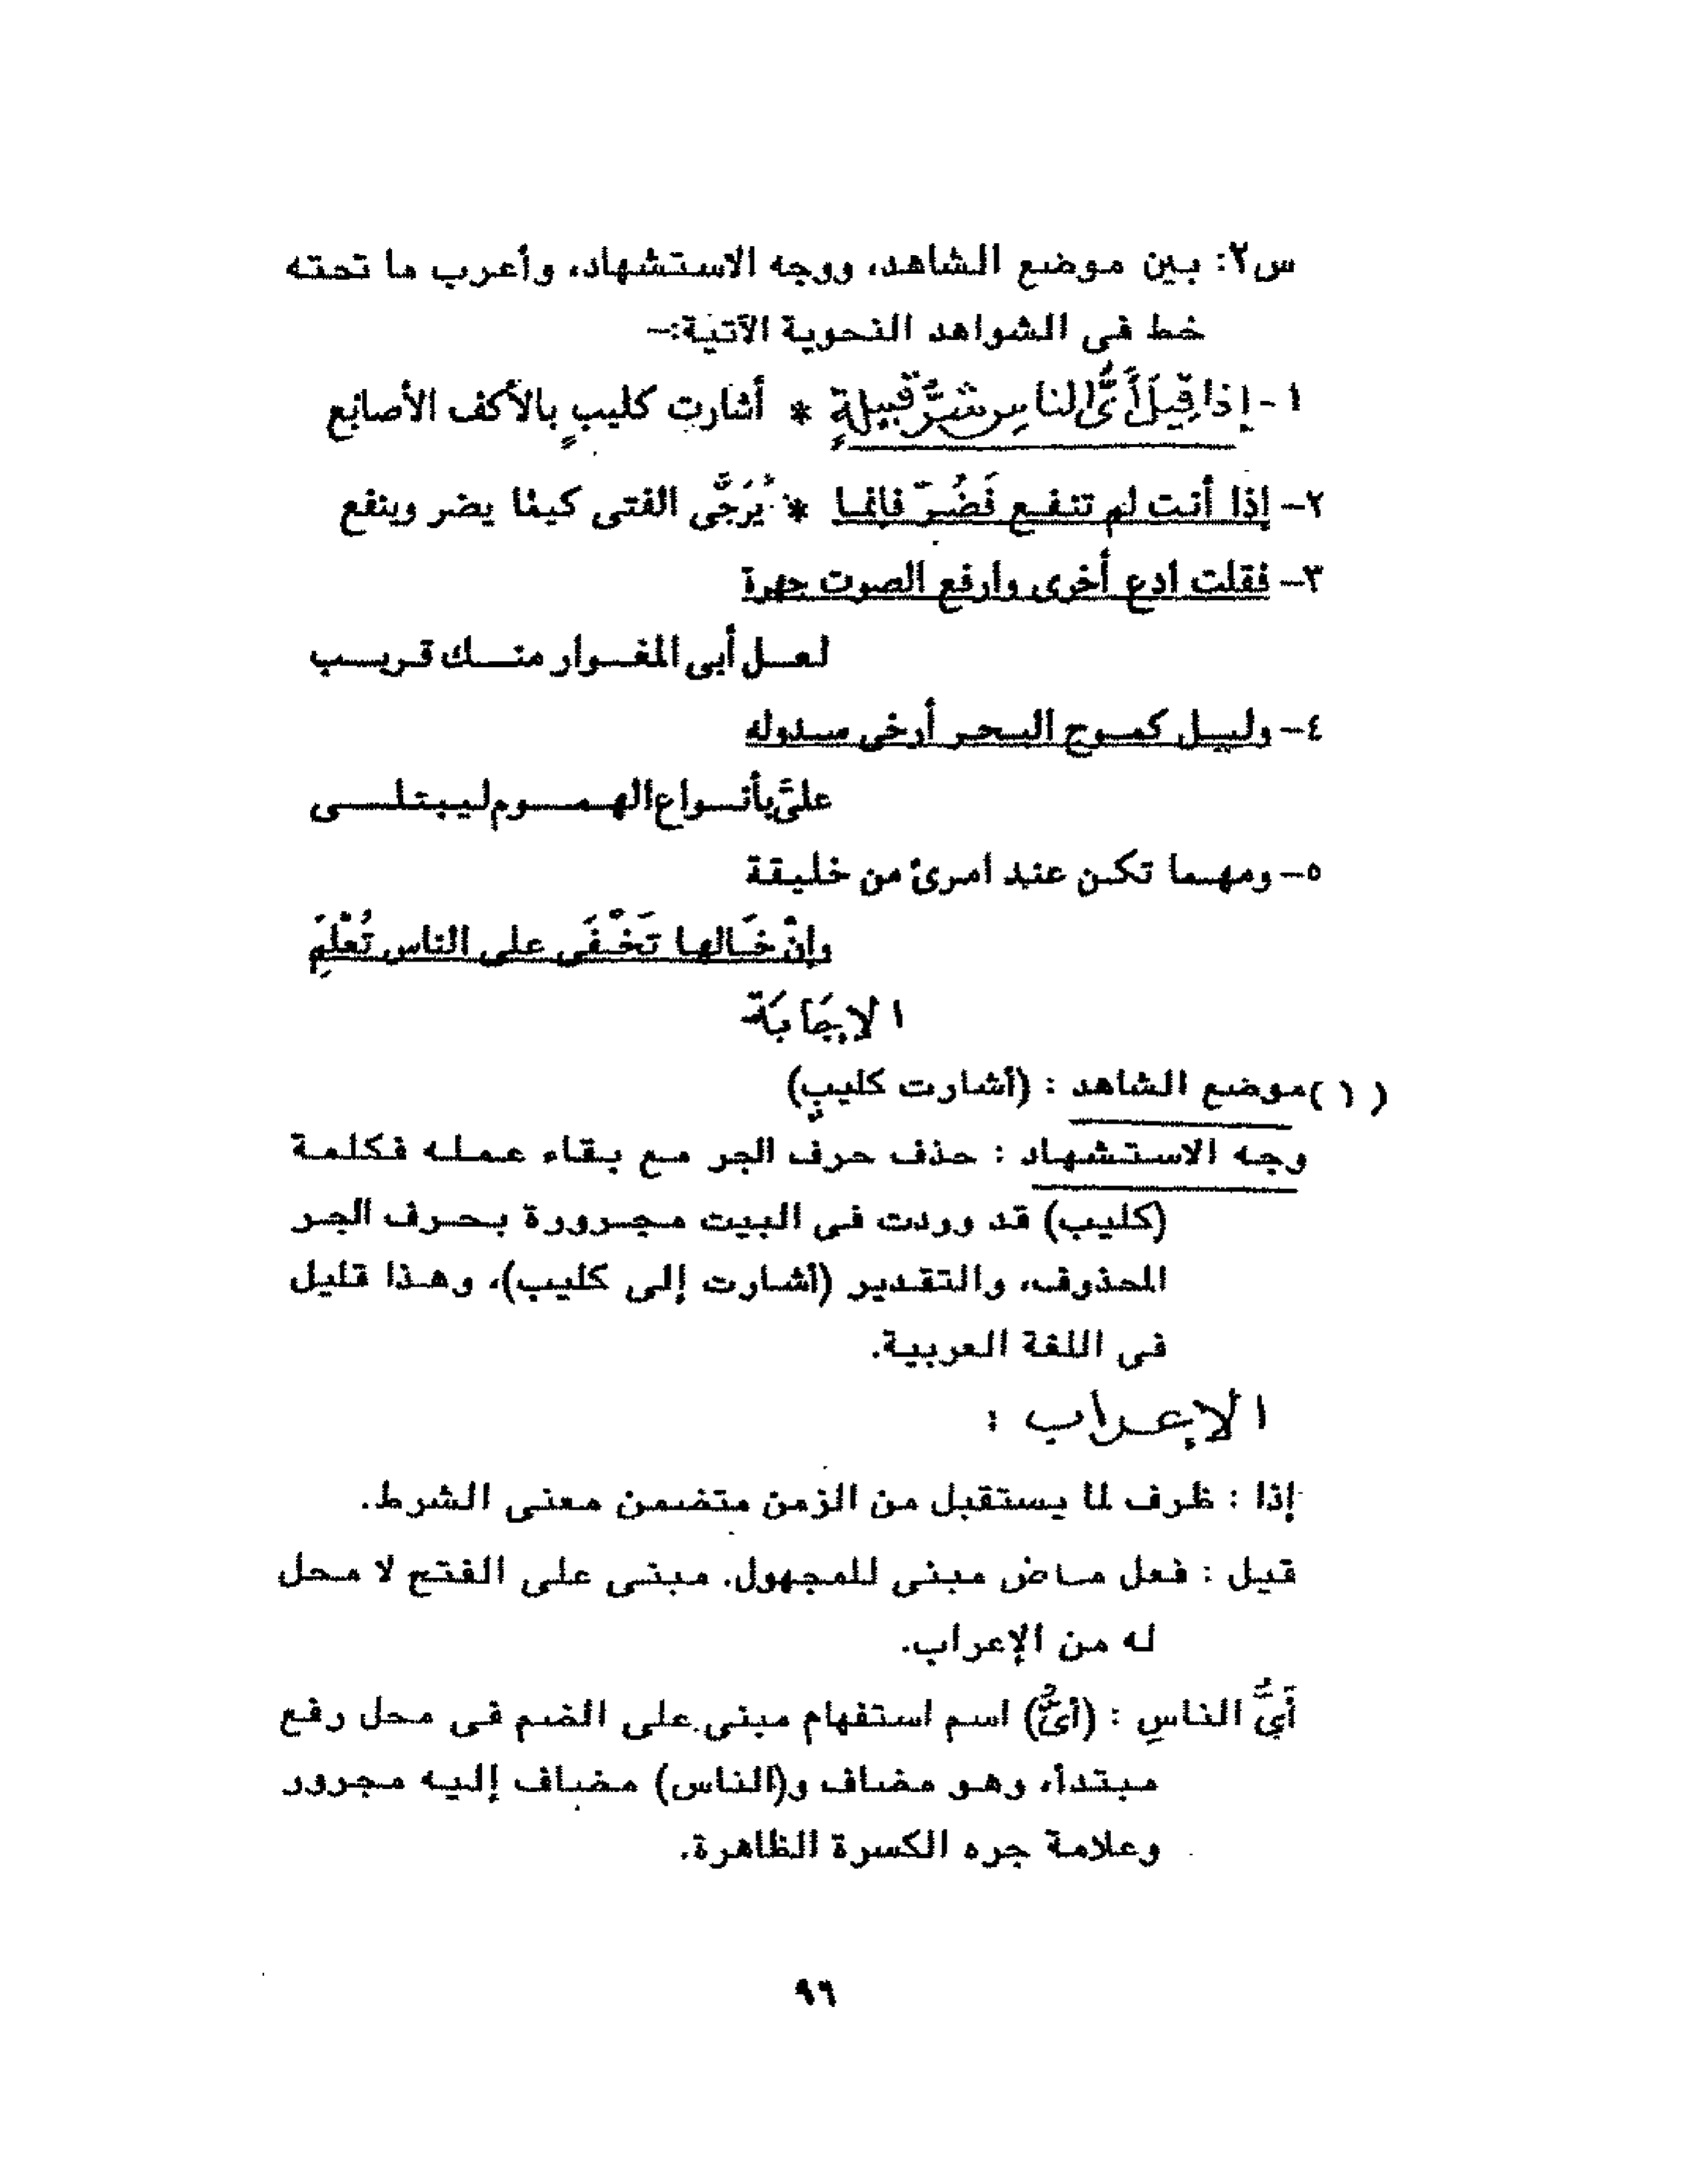 س٢: بين موضع الشاهد، ووجه الاستشهاد، وأعرب ما تحته
خط فى الشواهد النحوية الآتية:-
١- إذا قِيلَ أَىُّ الناسِ شرُّ قبيلةٍ * أشارت كليبٍ بالأكف الأصابع
٢- إذا أنت لم تنفع فَضُرّ فإنما * يُرَجَّى الفتى كيما يضر وينفع
٣- فقلت ادع أخرى وارفع الصوت جهرة
لعل أبى المغوار منك قريب
٤- وليل كموج البحر أرخى سدوله
علىَّ بأنواع الهموم ليبتلى
٥- ومهما تكن عند امرئ من خليقة
وإنْ خَالها تَخْفَى على الناس تُعْلَمِ
الإجَابَة
(١) موضع الشاهد : (أشارت كليبٍ)
وجه الاستشهاد : حذف حرف الجر مع بقاء عمله فكلمة
(كليب) قد وردت فى البيت مجرورة بحرف الجر
المحذوف، والتقدير (أشارت إلى كليب)، وهذا قليل
فى اللغة العربية.
الإعراب :
إذا : ظرف لما يستقبل من الزمن متضمن معنى الشرط.
قيل : فعل ماض مبنى للمجهول. مبنى على الفتح لا محل
له من الإعراب.
أَيُّ الناسِ : (أىُّ) اسم استفهام مبنى على الضم فى محل رفع
مبتدأ، وهو مضاف و(الناس) مضاف إليه مجرور
وعلامة جره الكسرة الظاهرة.
٩٦